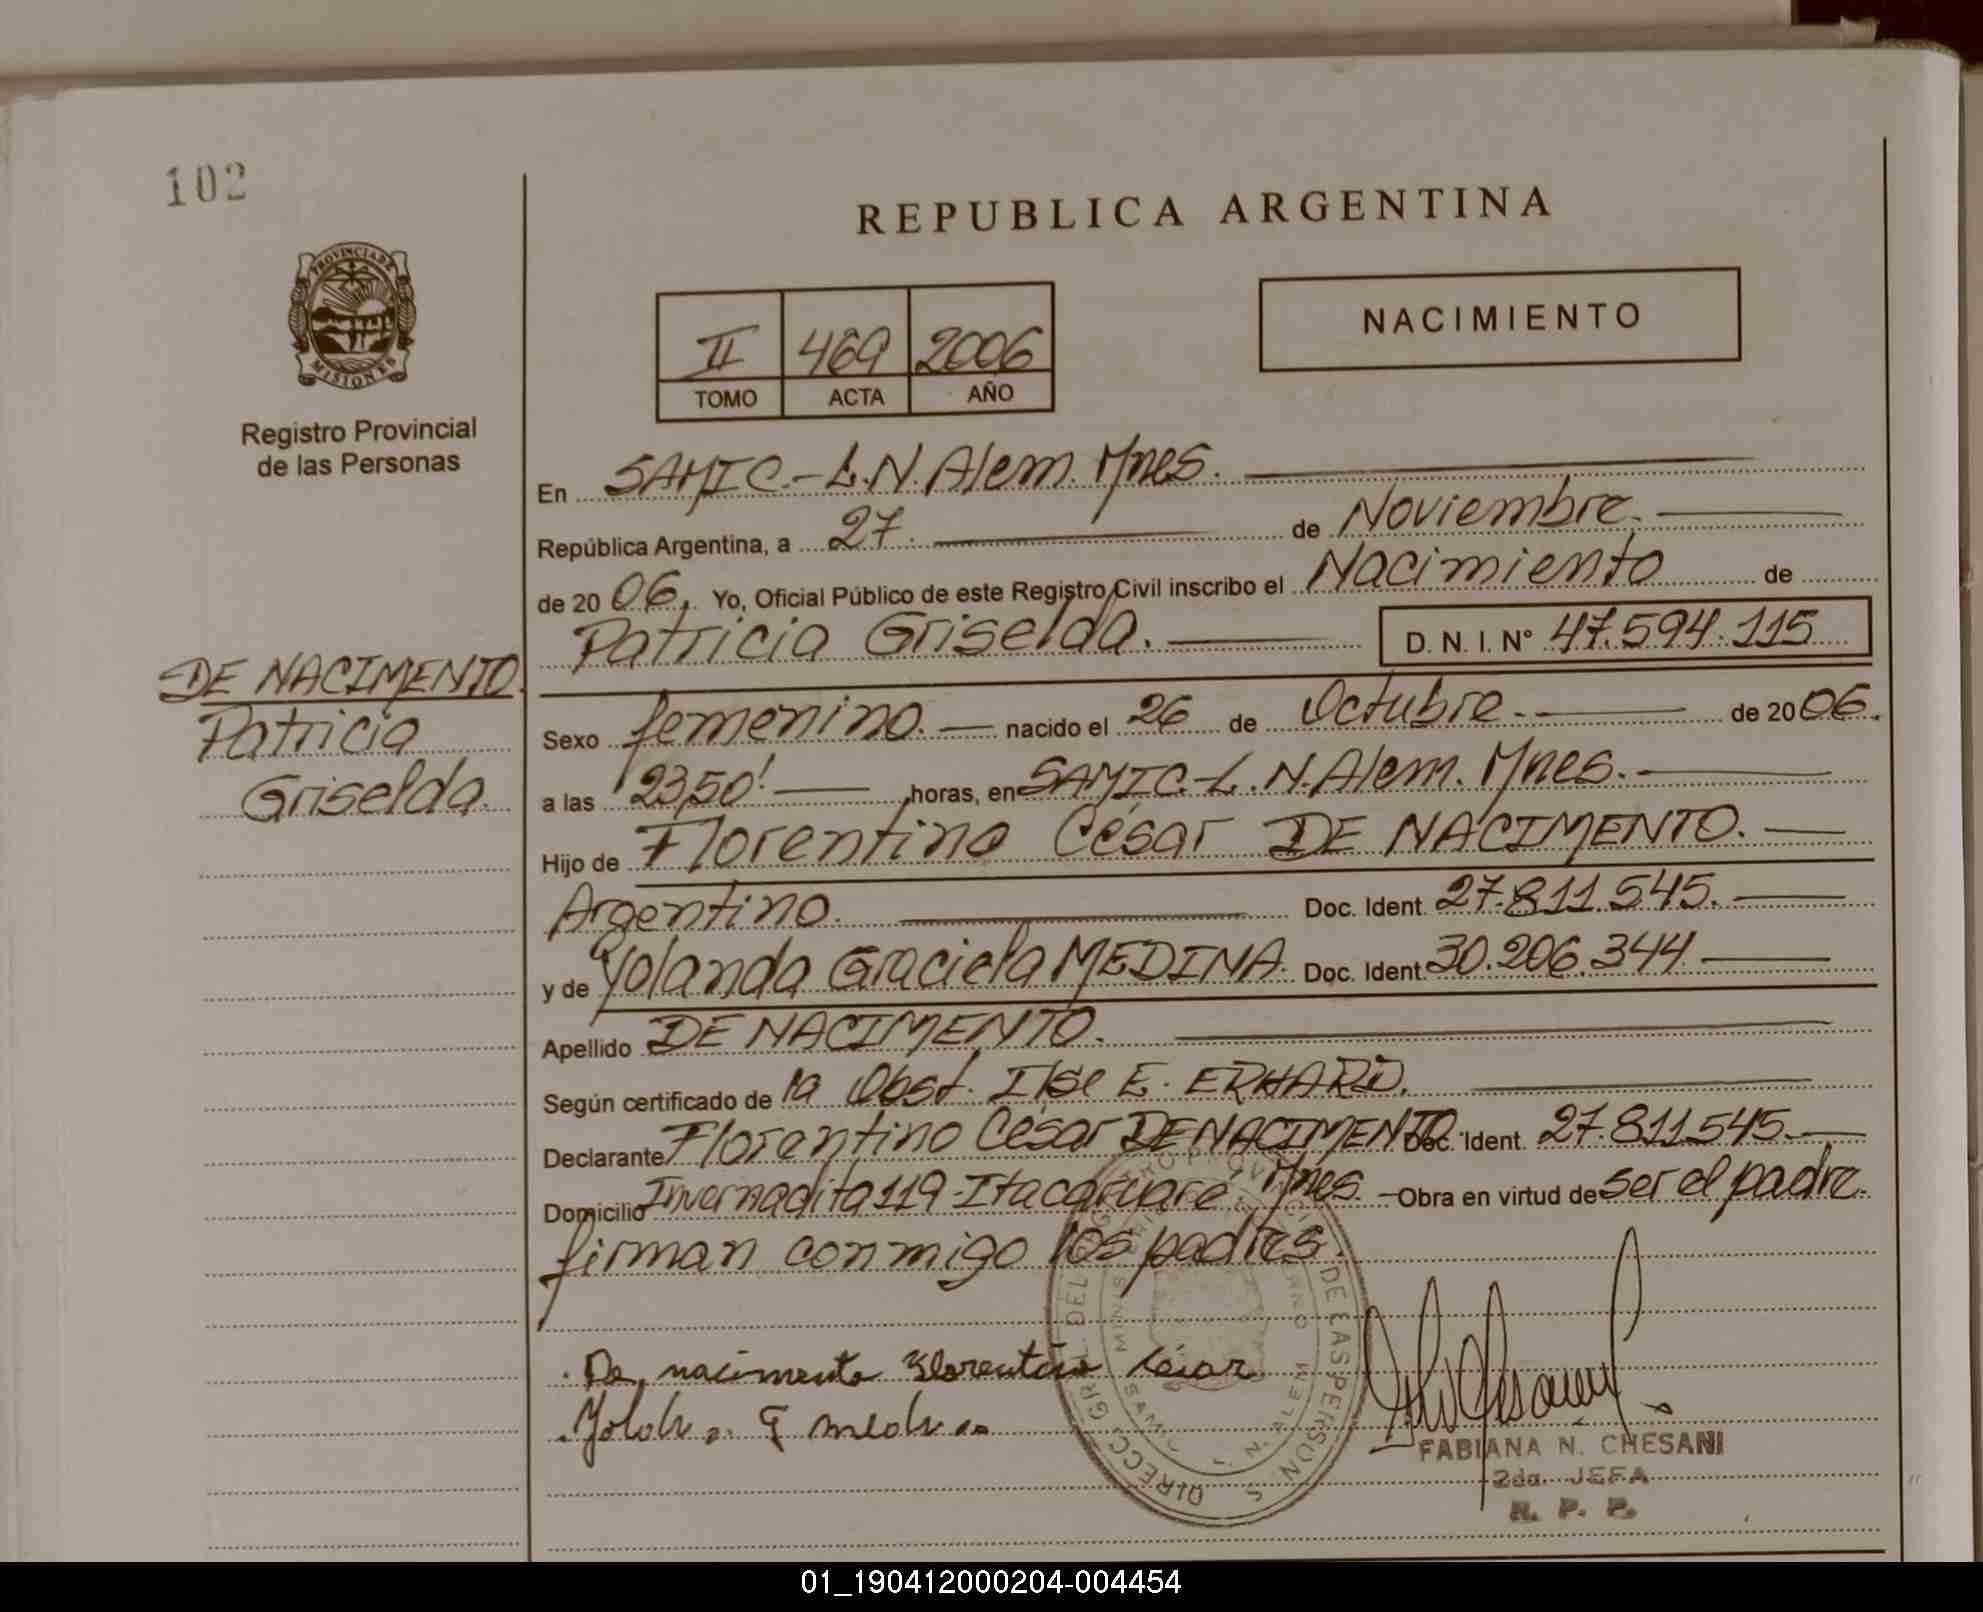 102
REPUBLICA ARGENTINA
PROVINCIA DE
MISIONES
Registro Provincial
de las Personas
II 469 2006
TOMO ACTA AÑO
NACIMIENTO
En SAMIC.-L.N.Alem. Mnes.
República Argentina, a 27. de Noviembre.
de 2006. Yo, Oficial Público de este Registro Civil inscribo el Nacimiento de
Patricia Griselda. D. N. I. Nº 47.594.115
DE NACIMENTO.
Patricia
Griselda.
Sexo femenino. nacido el 26 de Octubre. de 2006.
a las 23,50' horas, en SAMIC.-L.N.Alem. Mnes.
Hijo de Florentino César DE NACIMENTO.
Argentino. Doc. Ident. 27.811.545.
y de Yolanda Graciela MEDINA. Doc. Ident. 30.206.344
Apellido DE NACIMENTO.
Según certificado de la Obst. Ilse E. ERHARD.
Declarante Florentino César DE NACIMENTO Doc. Ident. 27.811.545.
Domicilio Invernadita 119-Itacaruaré, Mnes. Obra en virtud de ser el padre.
firman conmigo los padres.
De nacimento Florentino Cesar
FABIANA N. CHESANI
2da. JEFA
R. P. P.
01_190412000204-004454